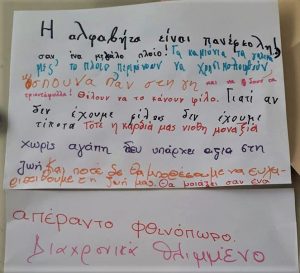 Η αλφαβήτα είναι πανέρκολη!
σαν ένα μεγάλο πλοίο! Τα καμιόνια τα γεμίζ
μες το πλοίο περιμένουν να χρησιμοποιηθούν
να παν στη γη και να ζήσουν σε
Θέλουν να το κάνουν φίλο. Γιατί αν
δεν έχουμε φίλους δεν έχουμε
τίποτα Τότε η καρδιά μας νιοθη μοναξιά
χωρίς αγάπη δεν υπάρχει αξία στη
ζωή. Και ποτέ δε θα μπορέσουμε να ευχα-
ριστηθούμε τη ζωή μας. Θα μοιάζει σαν ένα
απέραντο φθινόπωρο.
Διαχρονικά θλιμμένο